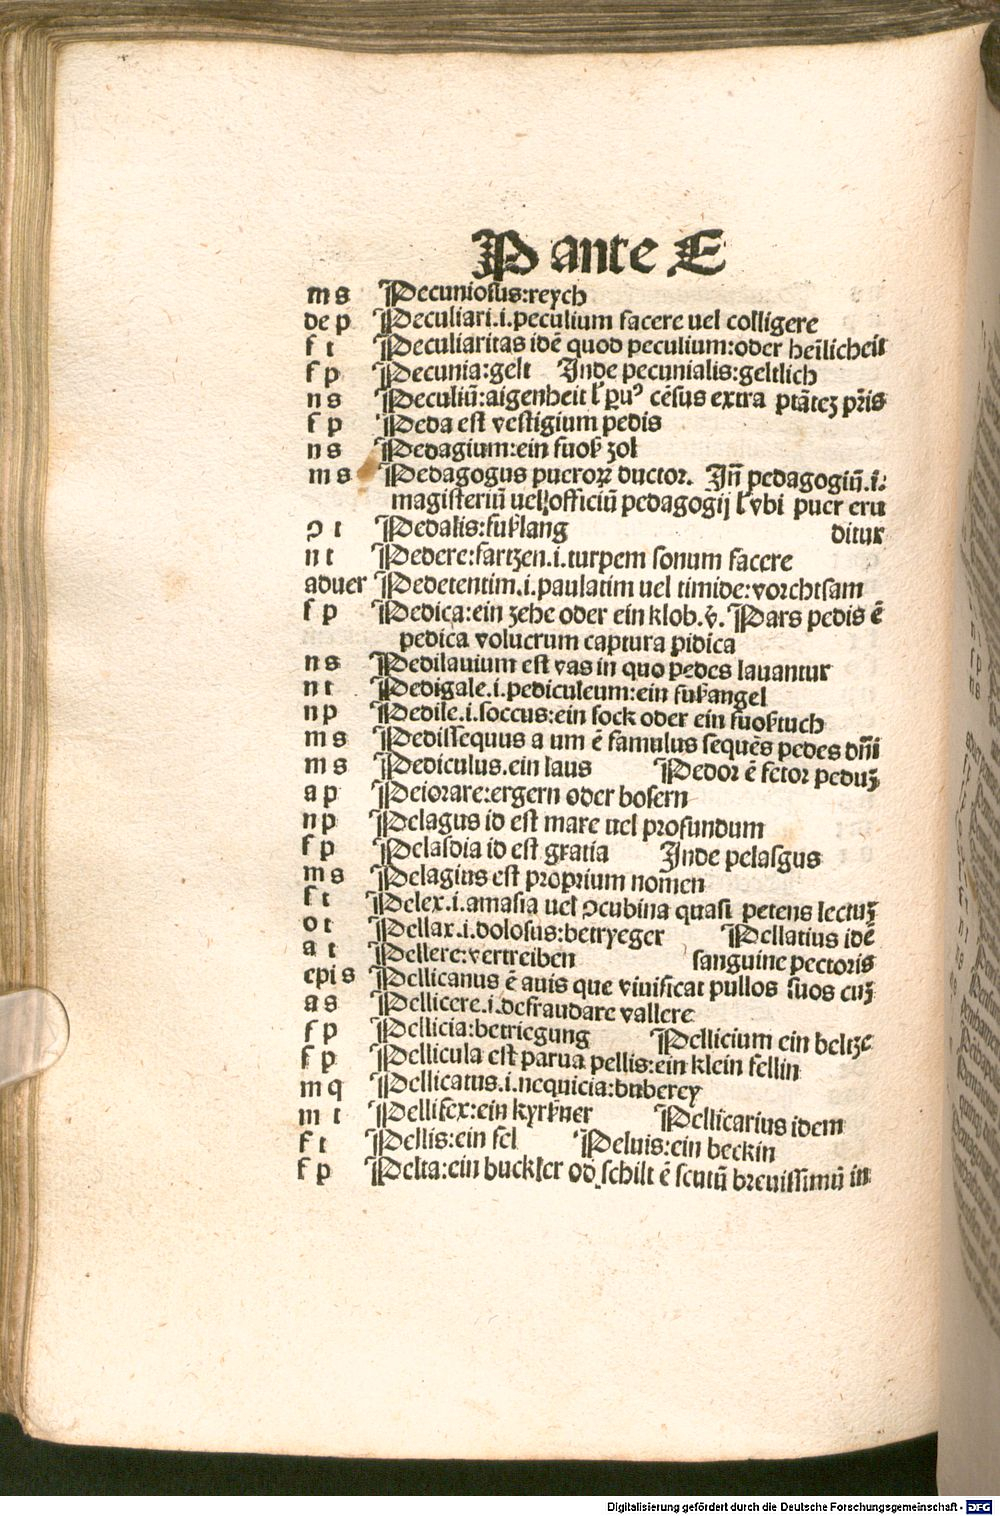 P ante E
m s Pecuniosus:reych
de p Peculiari.i.peculium facere uel colligere
f t Peculiaritas idē quod peculium:oder heīlicheit
f p Pecunia:gelt Inde pecunialis:geltlich
n s Peculiū:aigenheit ꝉ ꝑuꝰ cēsus extra ptātez pr̄is
f p Peda est vestigium pedis
n s Pedagium:ein fuoß zol
m s Pedagogus pueroꝝ ductor. Jn̄ pedagogiū.i.
magisteriū uel officiū pedagogij ꝉ vbi puer eru
ɔ t Pedalis:fußlang ditur
n t Pedere:fartzen.i.turpem sonum facere
aduer Pedetentim.i.paulatim uel timide:vorchtsam
f p Pedica:ein zehe oder ein klob.v̄. Pars pedis ē
pedica volucrum captura pidica
n s Pedilauium est vas in quo pedes lauantur
n t Pedigale.i.pediculeum:ein fußangel
n p Pedile.i.soccus:ein sock oder ein fuoßtuch
m s Pedissequus a um ē famulus sequēs pedes dn̄i
m s Pediculus.ein laus Pedor ē fetor peduꝫ
a p Peiorare:ergern oder bosern
n p Pelagus id est mare uel profundum
f p Pelasdia id est gratia Inde pelasgus
m s Pelagius est proprium nomen
f t Pelex.i.amasia uel ɔcubina quasi petens lectuꝫ
o t Pellax.i.dolosus:betryeger Pellatius idē
a t Pellere:vertreiben sanguine pectoris
epi s Pellicanus ē auis que viuificat pullos suos cuꝫ
a s Pellicere.i.defraudare vallere
f p Pellicia:betriegung Pellicium ein beltze
f p Pellicula est parua pellis:ein klein fellin
m q Pellicatus.i.nequicia:buberey
m t Pellifex:ein kyrßner Pellicarius idem
f t Pellis:ein fel Peluis:ein beckin
f p Pelta:ein buckler od schilt ē scutū breuissimū in
Digitalisierung gefördert durch die Deutsche Forschungsgemeinschaft - DFG